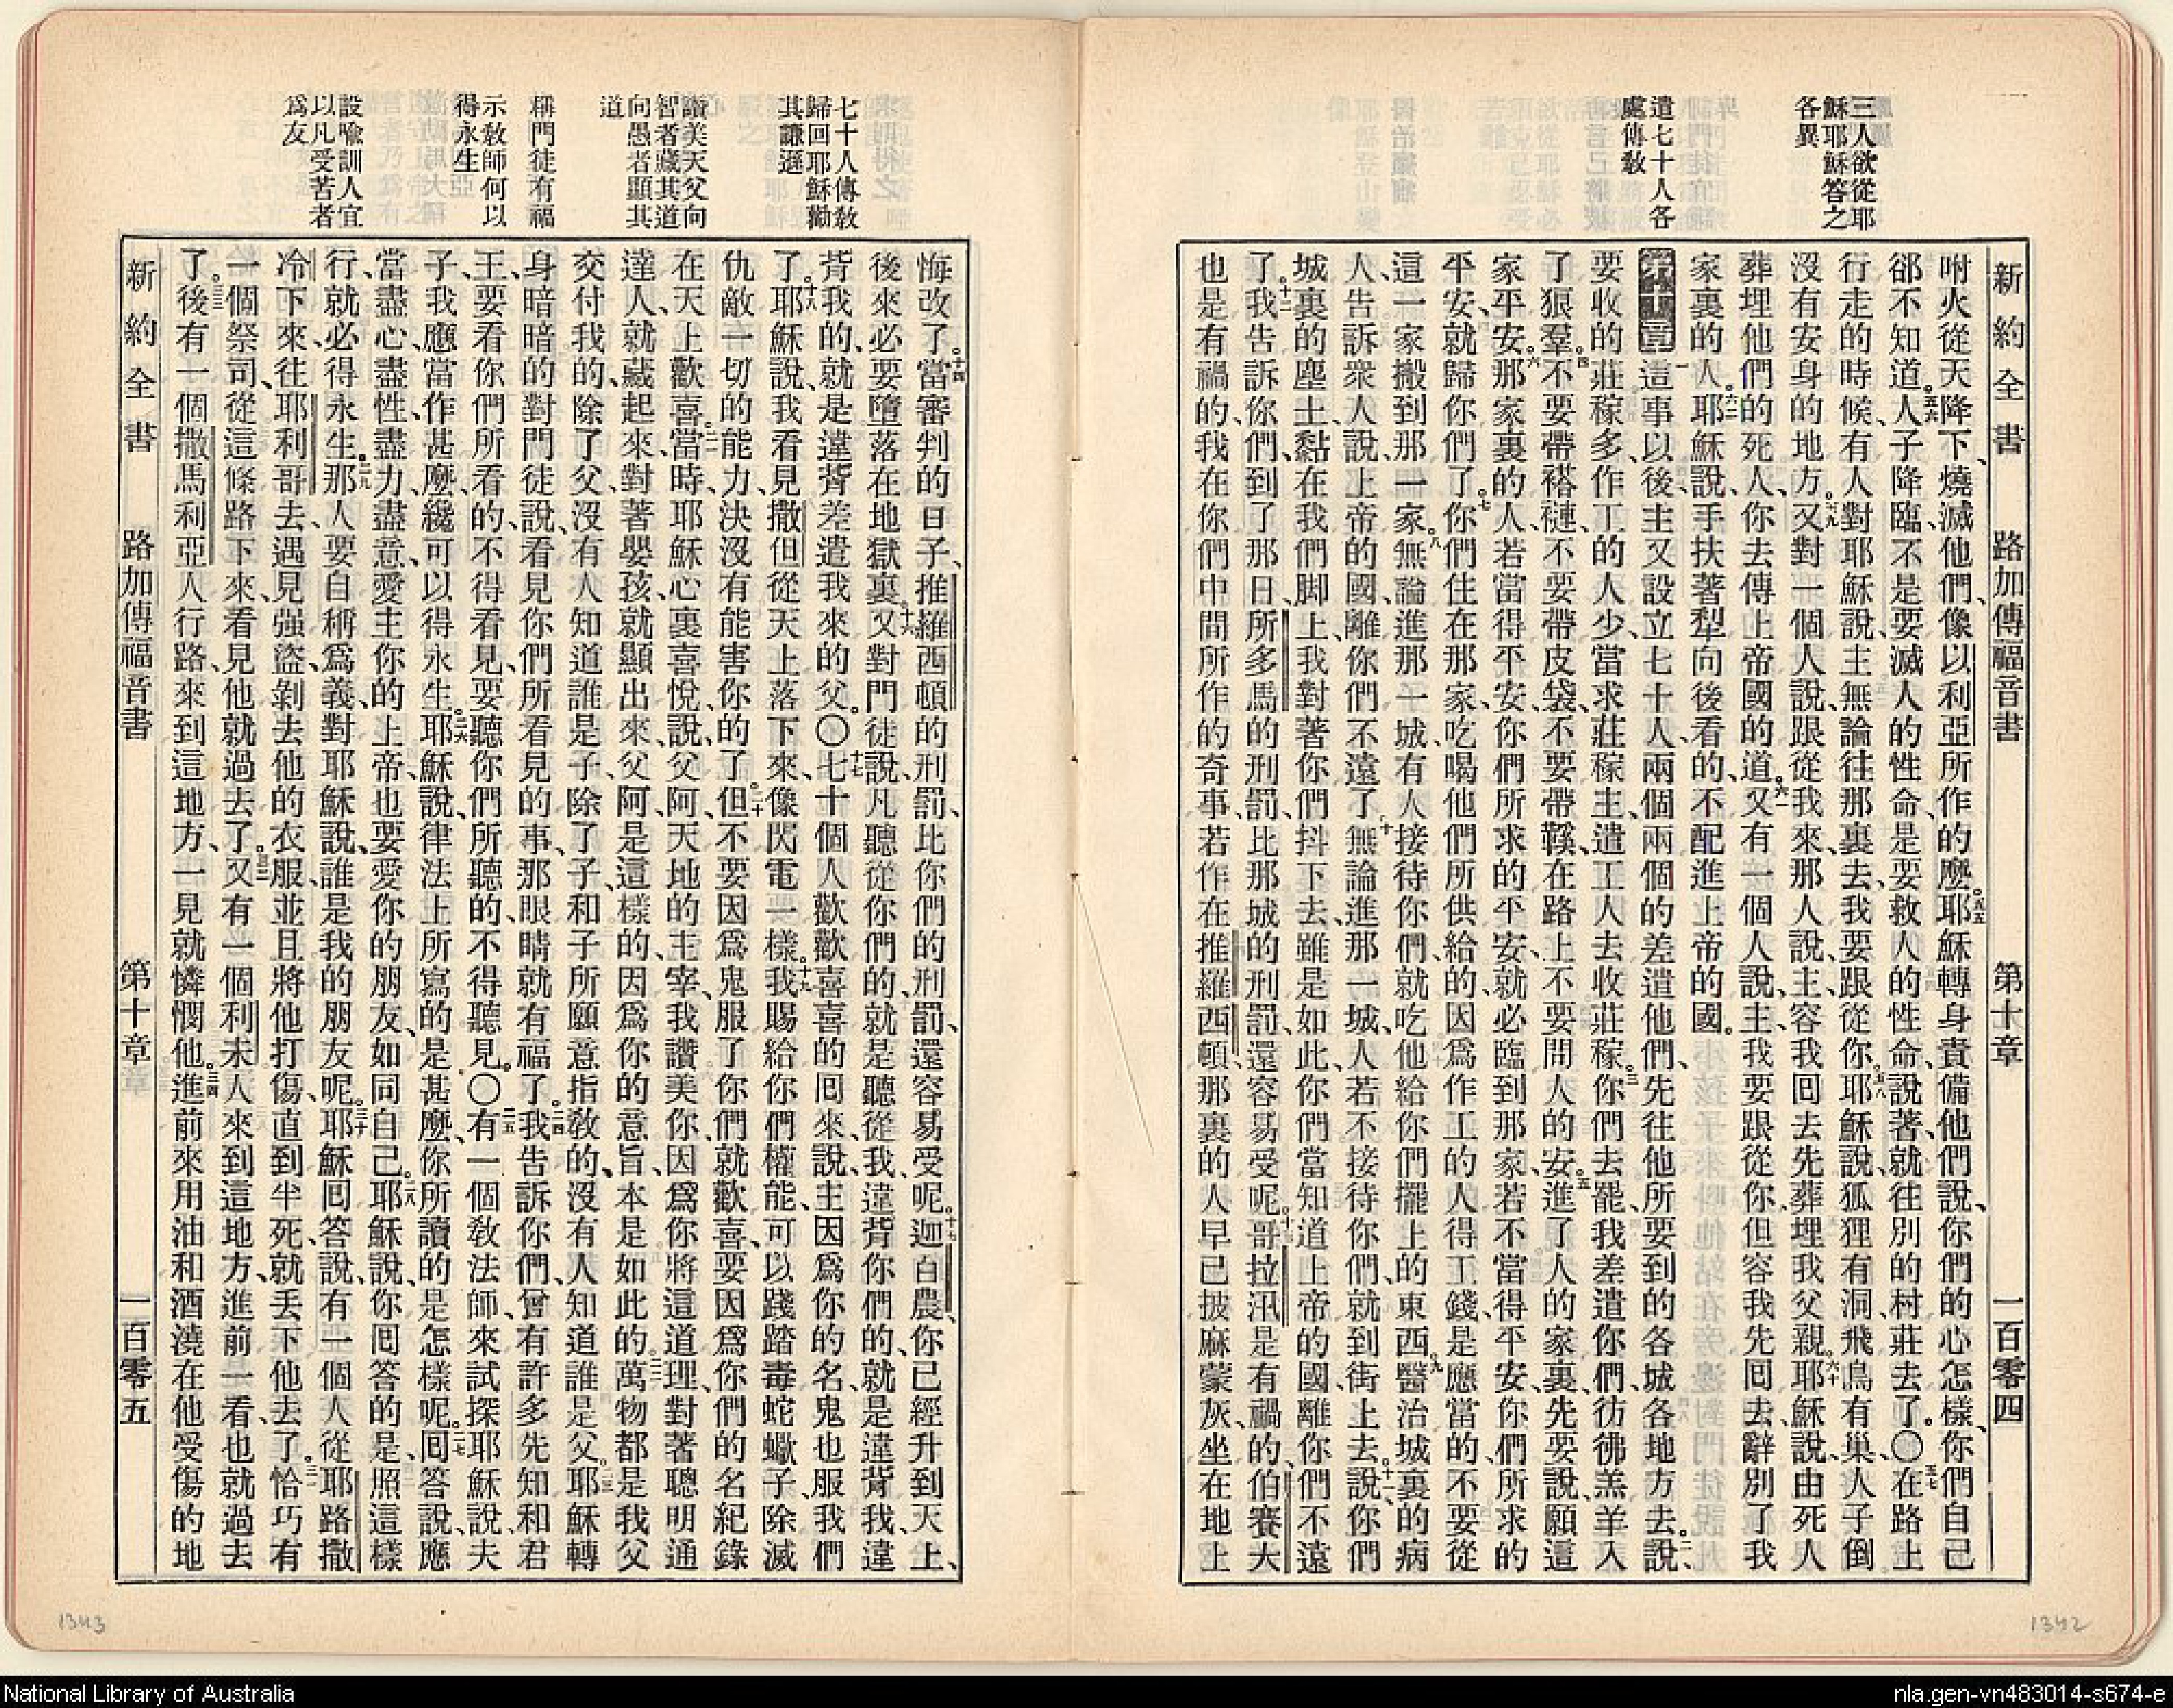 三人欲從耶
穌耶穌答之
各異
遣七十人各
處傳敎
新約全書 路加傳福音書 第十章 一百零四
咐火從天降下、燒滅他們、像以利亞所作的麼。五五耶穌轉身責備他們說、你們的心怎樣、你們自己
郤不知道。五六人子降臨、不是要滅人的性命、是要救人的性命、說著就往別的村莊去了。〇五七在路上
行走的時候、有人對耶穌說、主無論往那裏去、我要跟從你。五八耶穌說、狐狸有洞、飛鳥有巢、人子倒
沒有安身的地方。五九又對一個人說、跟從我來、那人說、主、容我回去先葬埋我父親。六十耶穌說、由死人
葬埋他們的死人、你去傳上帝國的道。六一又有一個人說、主、我要跟從你、但容我先回去辭別了我
家裏的人。六二耶穌說、手扶著犁向後看的、不配進上帝的國。
第十章 一這事以後、主又設立七十人、兩個兩個的差遣他們、先往他所要到的各城各地方去。二說、
要收的莊稼多、作工的人少、當求莊稼主、遣工人去收莊稼。三你們去罷、我差遣你們、彷彿羔羊入
了狼羣。四不要帶褡褳、不要帶皮袋、不要帶鞵、在路上不要問人的安。五進了人的家裏、先要說、願這
家平安。六那家裏的人、若當得平安、你們所求的平安、就必臨到那家、若不當得平安、你們所求的
平安、就歸你們了。七你們住在那家、吃喝他們所供給的、因爲作工的人得工錢、是應當的、不要從
這一家搬到那一家。八無論進那一城、有人接待你們、就吃他給你們擺上的東西。九醫治城裏的病
人、告訴衆人說、上帝的國、離你們不遠了。十無論進那一城、人若不接待你們、就到街上去。十一說、你們
城裏的塵土、黏在我們脚上、我對著你們抖下去、雖是如此、你們當知道上帝的國、離你們不遠
了。十二我告訴你們、到了那日、所多馬的刑罰、比那城的刑罰、還容易受呢。十三哥拉汛是有禍的、伯賽大
也是有禍的、我在你們中間所作的奇事、若作在推羅西頓、那裏的人早已披麻蒙灰、坐在地上
1342
七十人傳敎
歸回耶穌勸
其謙遜
讚美天父向
智者藏其道
向愚者顯其
道
稱門徒有福
示敎師何以
得永生
設喩訓人宜
以凡受苦者
爲友
悔改了。十四當審判的日子、推羅西頓的刑罰、比你們的刑罰、還容易受呢。十五迦百農、你已經升到天上、
後來必要墮落在地獄裏。十六又對門徒說、凡聽從你們的、就是聽從我、違背你們的、就是違背我、違
背我的、就是違背差遣我來的父。〇十七七十個人歡歡喜喜的囘來、說、主、因爲你的名、鬼也服我們
了。十八耶穌說、我看見撒但從天上落下來、像閃電一樣。十九我賜給你們權能、可以踐踏毒蛇蠍子、除滅
仇敵一切的能力、決沒有能害你的了。二十但不要因爲鬼服了你們就歡喜、要因爲你們的名紀錄
在天上歡喜。二一當時耶穌心裏喜悅、說、父阿、天地的主宰、我讚美你、因爲你將這道理、對著聰明通
達人、就藏起來、對著嬰孩、就顯出來、父阿、是這樣的、因爲你的意旨、本是如此的。二二萬物都是我父
交付我的、除了父、沒有人知道誰是子、除了子、和子所願意指敎的、沒有人知道誰是父。二三耶穌轉
身暗暗的對門徒說、看見你們所看見的事、那眼睛就有福了。二四我告訴你們、曾有許多先知和君
王、要看你們所看的、不得看見、要聽你們所聽的、不得聽見。〇二五有一個敎法師、來試探耶穌說、夫
子、我應當作甚麼、纔可以得永生。二六耶穌說、律法上所寫的是甚麼、你所讀的是怎樣呢。二七囘答說、應
當盡心、盡性、盡力、盡意、愛主你的上帝、也要愛你的朋友、如同自己。二八耶穌說、你囘答的是、照這樣
行、就必得永生。二九那人要自稱爲義、對耶穌說、誰是我的朋友呢。三十耶穌囘答說、有一個人從耶路撒
冷下來、往耶利哥去、遇見强盜、剝去他的衣服、並且將他打傷、直到半死、就丟下他去了。三一恰巧有
一個祭司、從這條路下來、看見他就過去了。三二又有一個利未人、來到這地方、進前一看、也就過去
了。三三後有一個撒馬利亞人行路、來到這地方、一見就憐憫他。三四進前來用油和酒澆在他受傷的地
新約全書 路加傳福音書 第十章 一百零五
1343
National Library of Australia
nla.gen-vn483014-s674-e